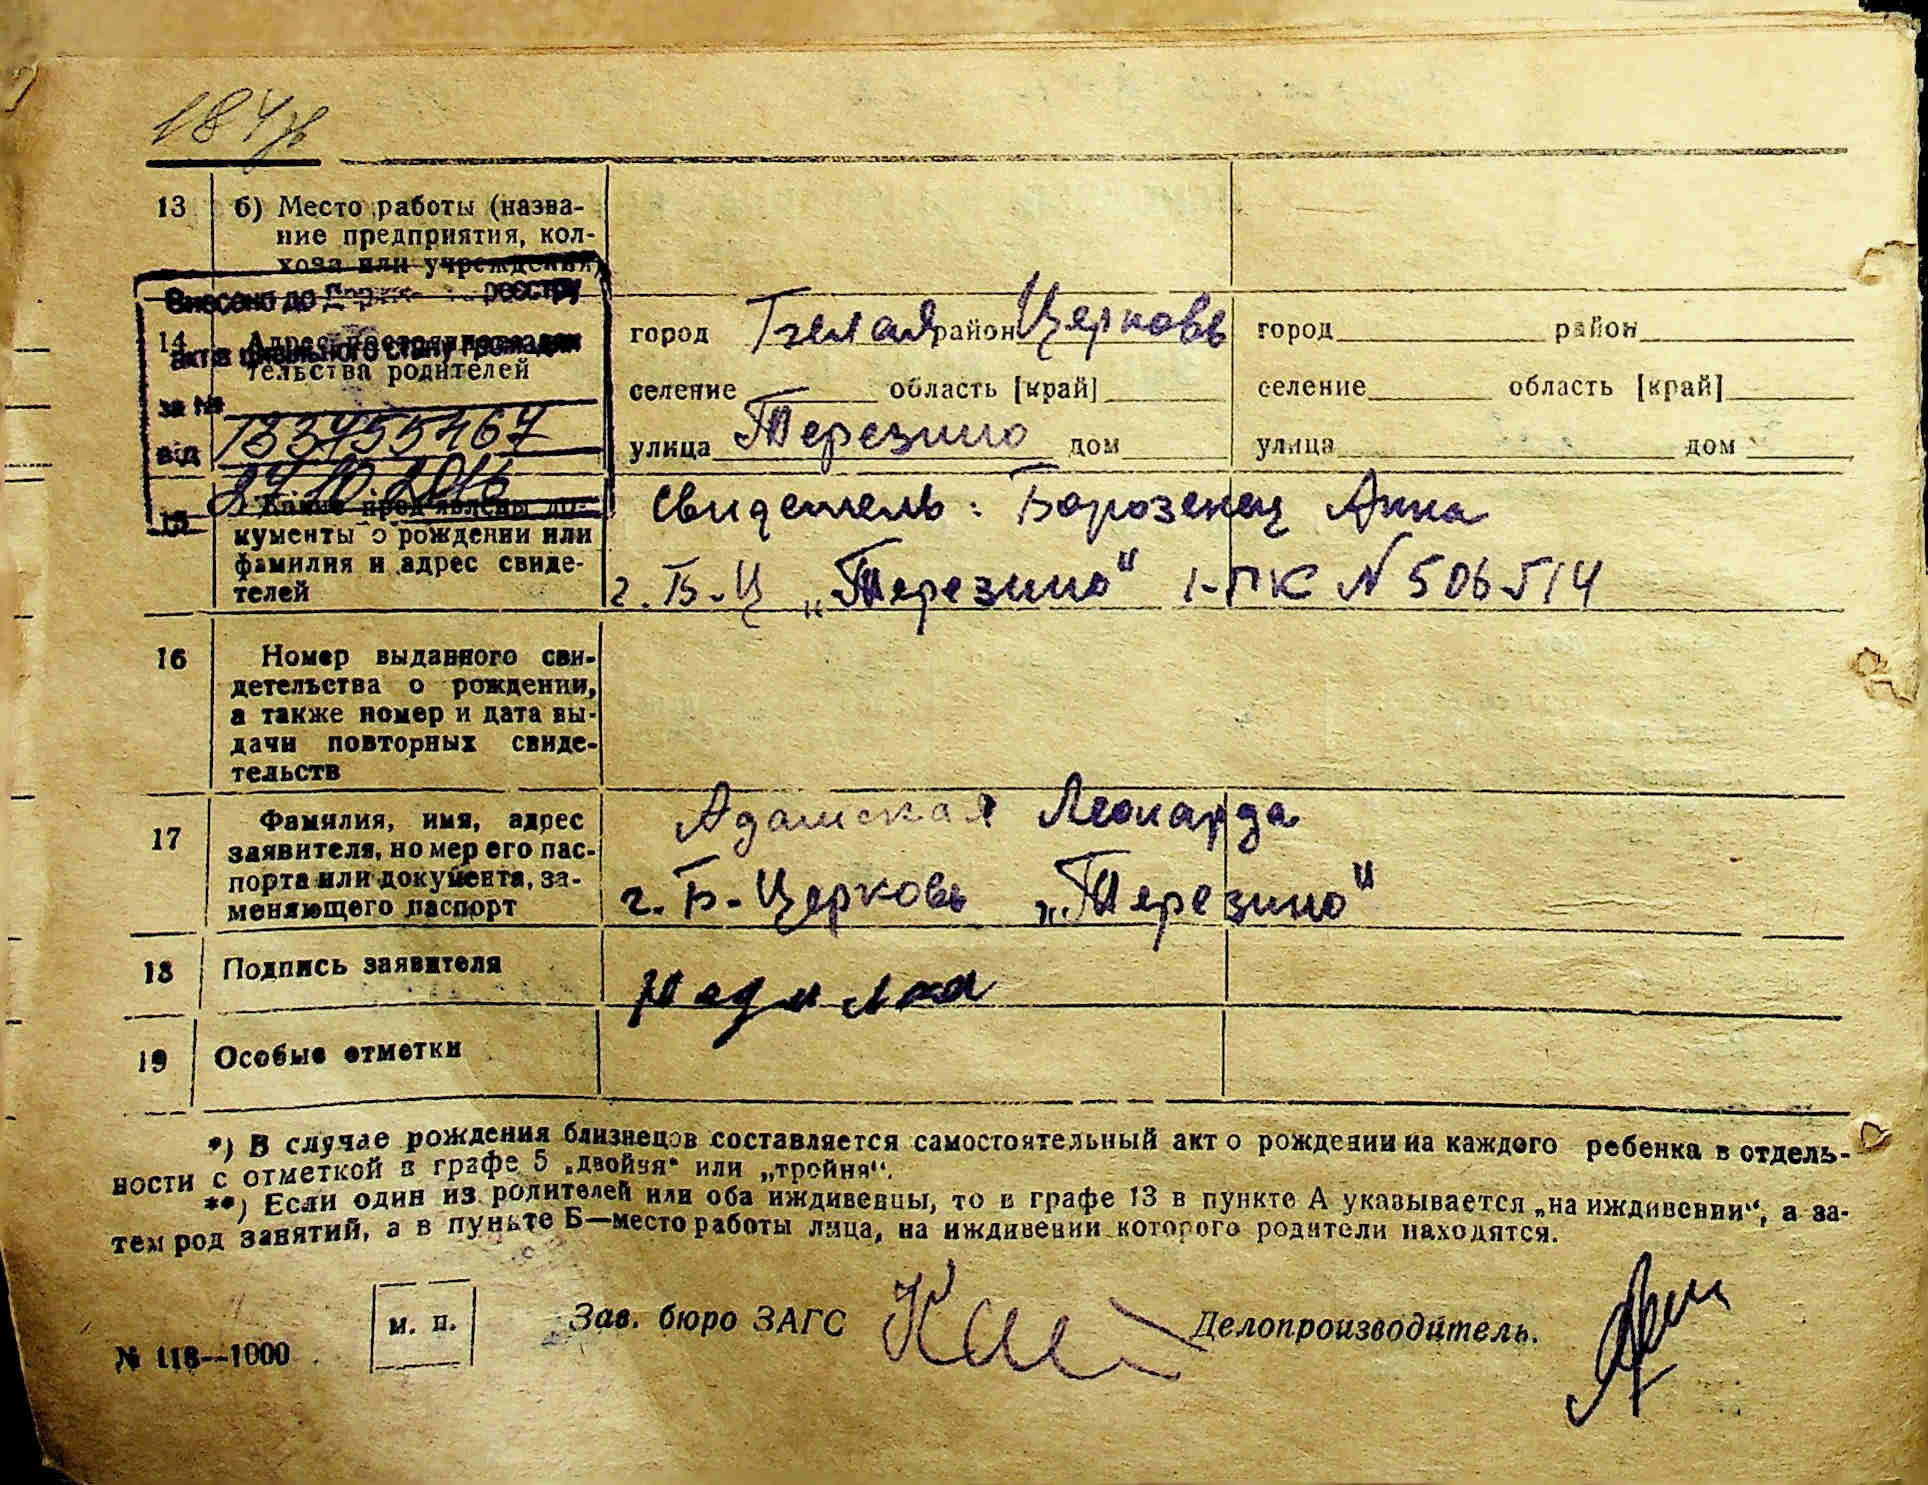 184
13 б) Место работы (назва-
ние предприятия, кол-
хоза или учреждения)
Внесено до реєстру
14 Адрес
актів цивільного стану громадян
тельства родителей
за №
від 27.10.2016
город Белая район Церковь
селение область [край]
улица Терезино дом
город район
селение область [край]
улица дом
15 Какие пред'явлены до-
кументы о рождении или
фамилия и адрес свиде-
телей
Свидетель: Борозенец Анна
г. Б-Ц „Терезино" 1-ПК N 506514
16 Номер выданного сви-
детельства о рождении,
а также номер и дата вы-
дачи повторных свиде-
тельств
17 Фамилия, имя, адрес
заявителя, номер его пас-
порта или документа, за-
меняющего паспорт
Адамская Леонарда
г. Б-Церковь „Терезино"
18 Подпись заявителя
19 Особые отметки
*) В случае рождения близнецов составляется самостоятельный акт о рождении на каждого ребенка в отдель-
ности с отметкой в графе 5 „двойня" или „тройня".
**) Если один из родителей или оба иждивенцы, то в графе 13 в пункте А указывается „на иждивении", а за-
тем род занятий, а в пункте Б—место работы лица, на иждивении которого родители находятся.
м. п.
Зав. бюро ЗАГС
Делопроизводитель.
№ 118--1000